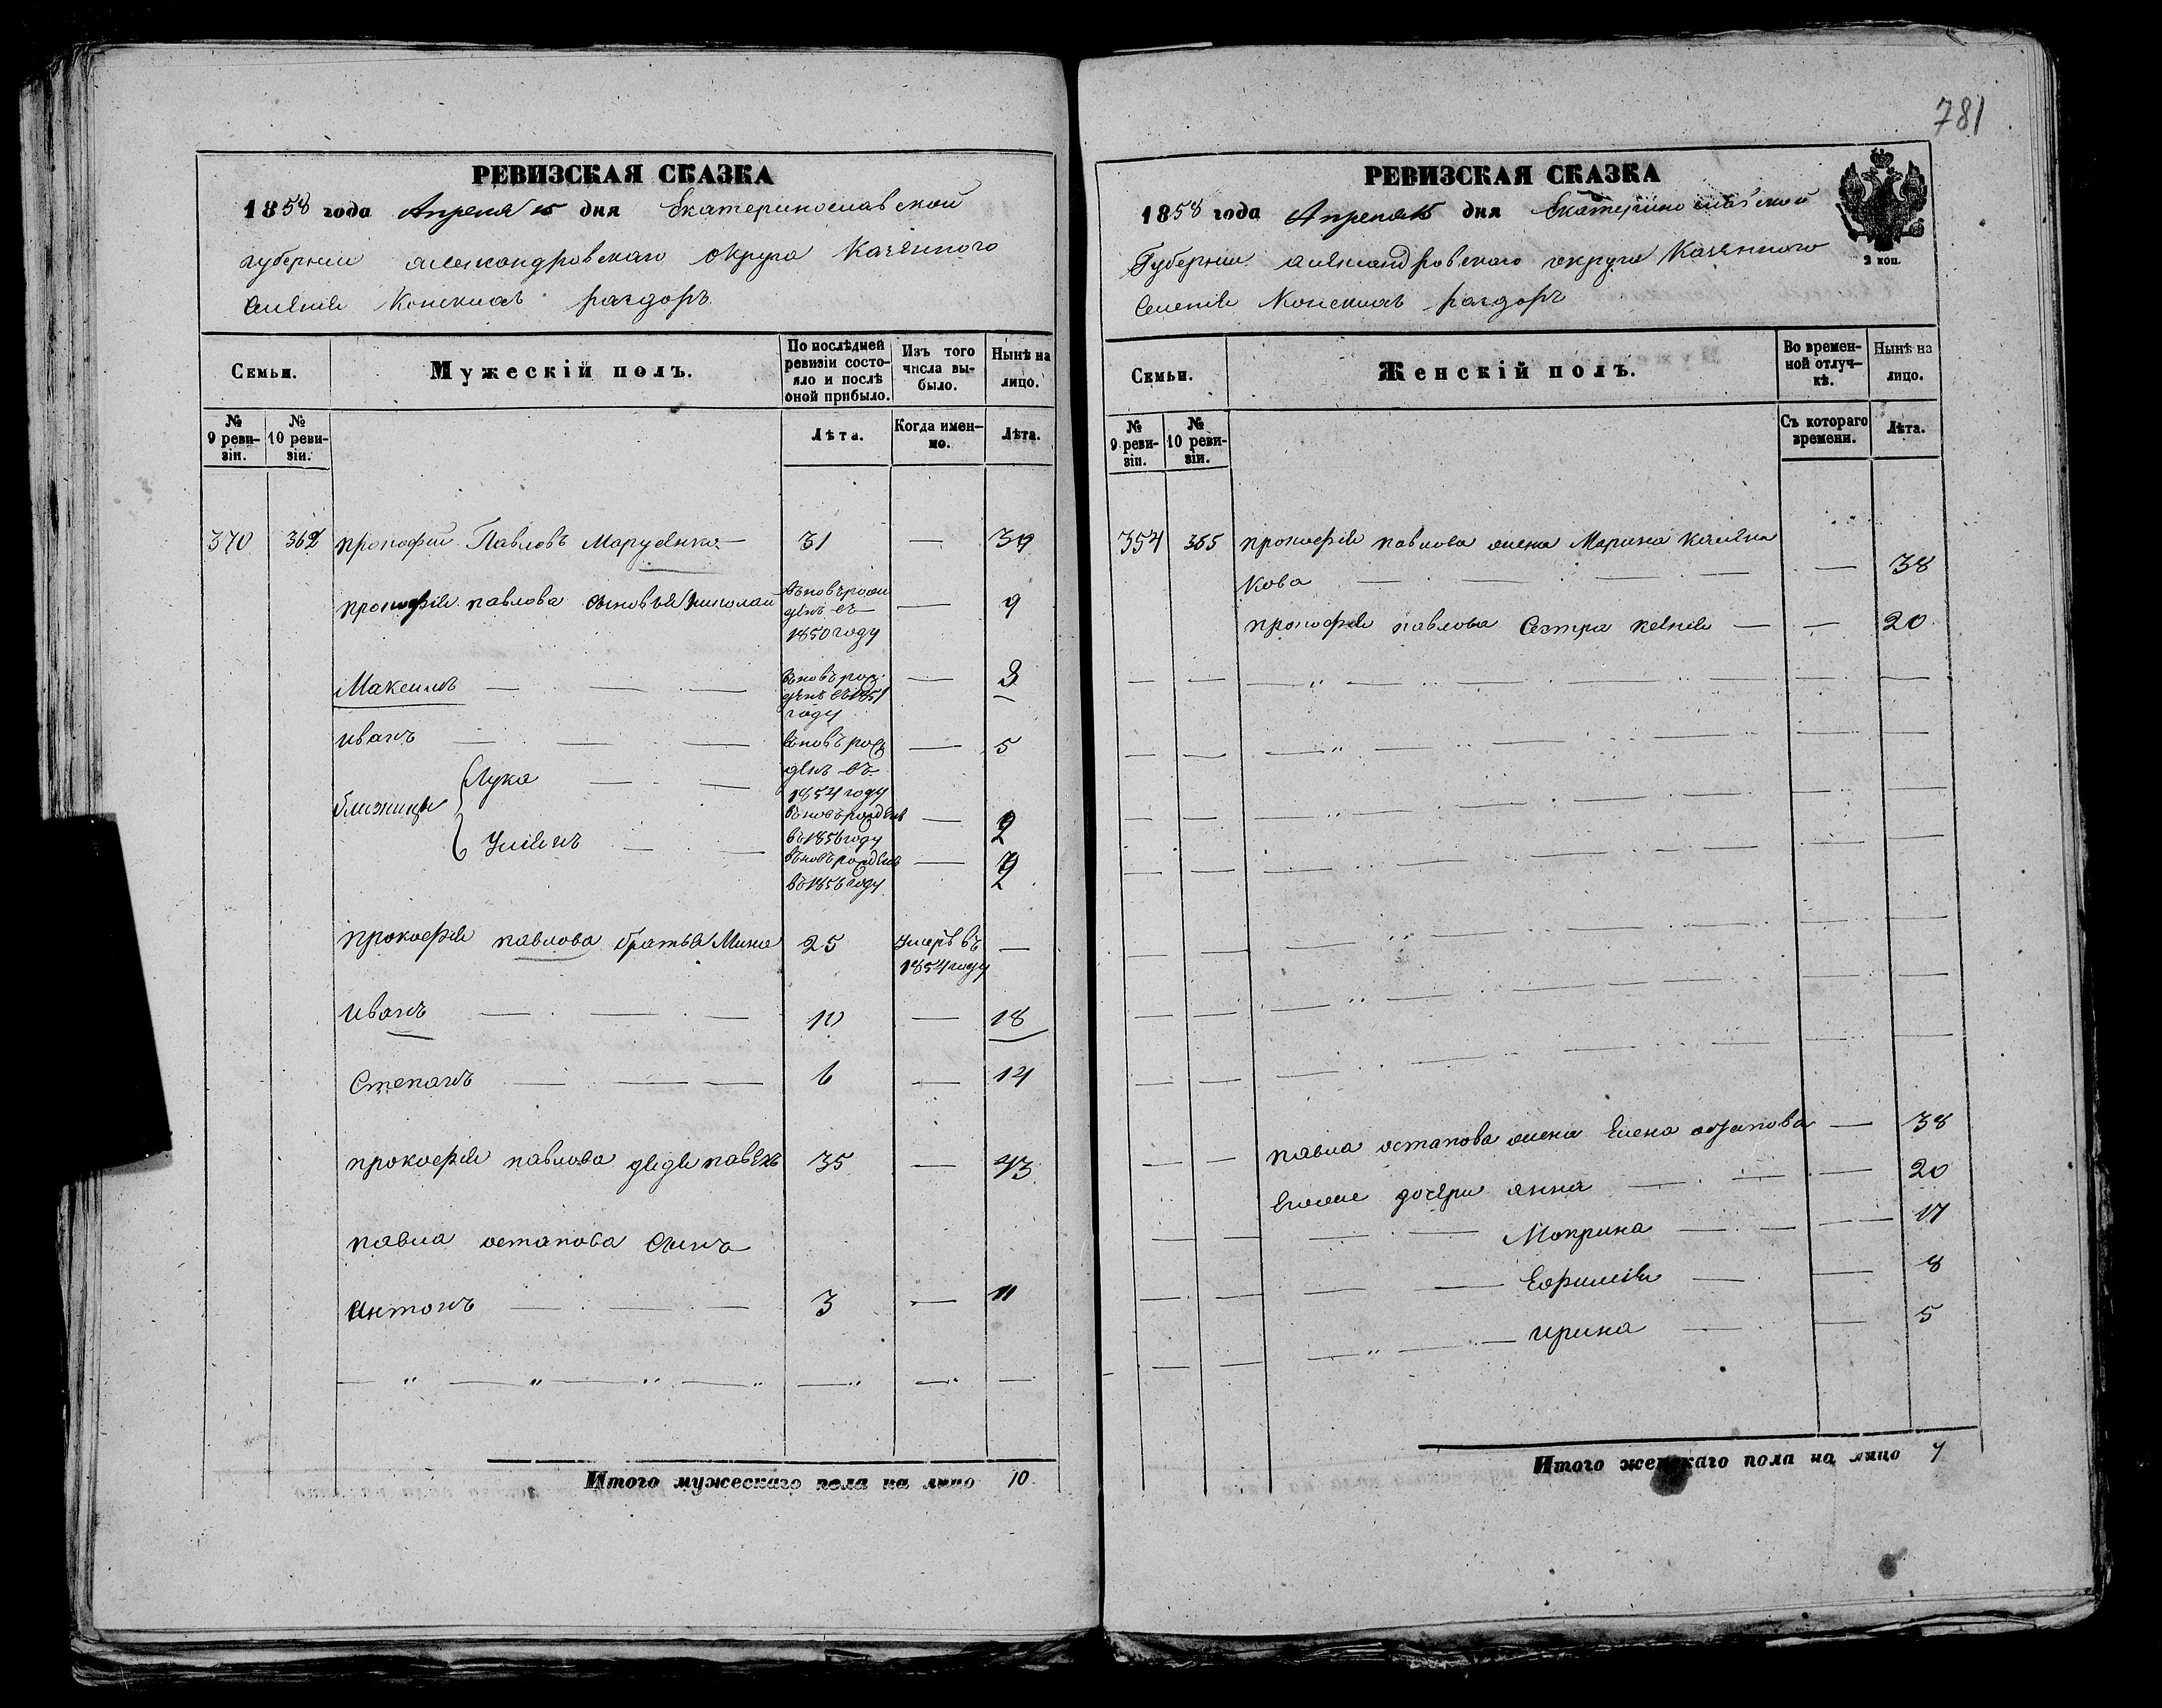 781
РЕВИЗСКАЯ СКАЗКА
1858 года Апреля 15 дня Екатеринославской
губернии александровскаго округа Казеннаго
Селенія Конскихъ раздоръ
Семьи.
Мужескій полъ.
По послѣдней ревизіи состо-
яло и послѣ
оной прибыло.
Изъ того
числа вы-
было.
Нынѣ на
лицо.
№
9 реви-
зіи.
№
10 реви-
зіи.
Лѣта.
Когда имен-
но.
Лѣта.
370 362 прокофий Павловъ Марусенко — 31 — 39
прокофія павлова сыновья николай вновь рож
денъ въ
1850 году — 9
Максимъ вновь рож
денъ въ 1851
году — 8
иванъ вновь рож
денъ въ
1854 году — 5
близнецы
Лука вновь рожденъ
въ 1856 году — 2
вновь рожденъ
въ 1856 году — 2
прокофія павлова братья Мина 25 умеръ въ
1854 году —
иванъ 10 — 18
Степанъ 6 — 14
прокофія павлова дядя павелъ 35 — 43
павла остапова сынъ
антонъ 3 — 11
Итого мужескаго пола на лицо 10
РЕВИЗСКАЯ СКАЗКА
1858 года Апреля 15 дня Екатеринославской
Губернии александровскаго округа Казеннаго
Селенія Конскихъ раздоръ
2 коп.
Семьи.
Женскій полъ.
Во времен-
ной отлуч-
кѣ.
Нынѣ на
лицо.
№
9 реви-
зіи.
№
10 реви-
зіи.
Съ котораго
времени.
Лѣта.
354 355 прокофія павлова жена Марина
кова — 38
прокофія павлова Сестра — — 20
павла остапова жена Елена — 38
дочери анна — 20
Мокрина — 17
Ефимія — 8
ирина — 5
Итого женскаго пола на лицо 7